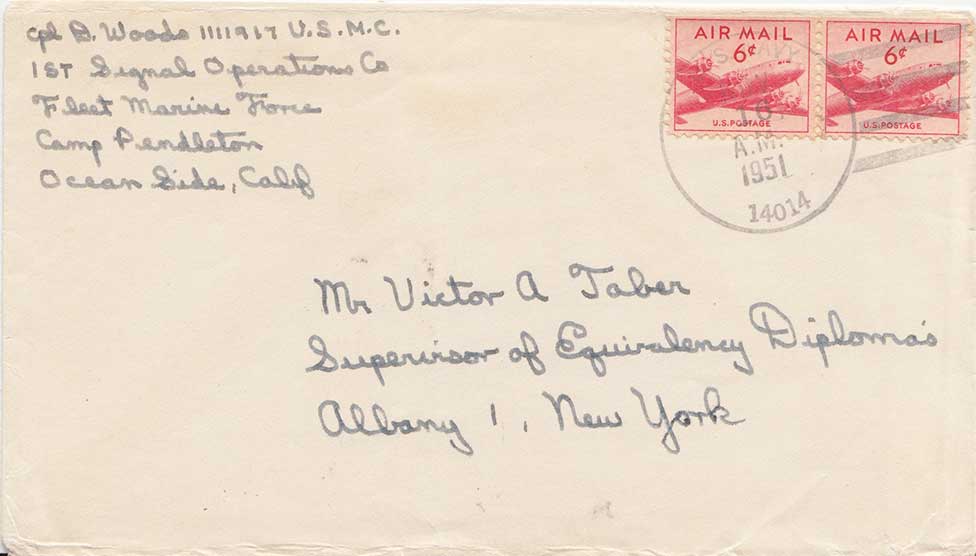 Cpl D. Woods 1111917 U.S.M.C.
1ST Signal Operations Co
Fleet Marine Force
Camp Pendleton
Ocean Side, Calif
AIR MAIL
6¢
U.S. POSTAGE
AIR MAIL
6¢
U.S. POSTAGE
U.S. NAVY
10
A.M.
1951
14014
Mr Victor A Taber
Supervisor of Equivalency Diploma's
Albany 1, New York